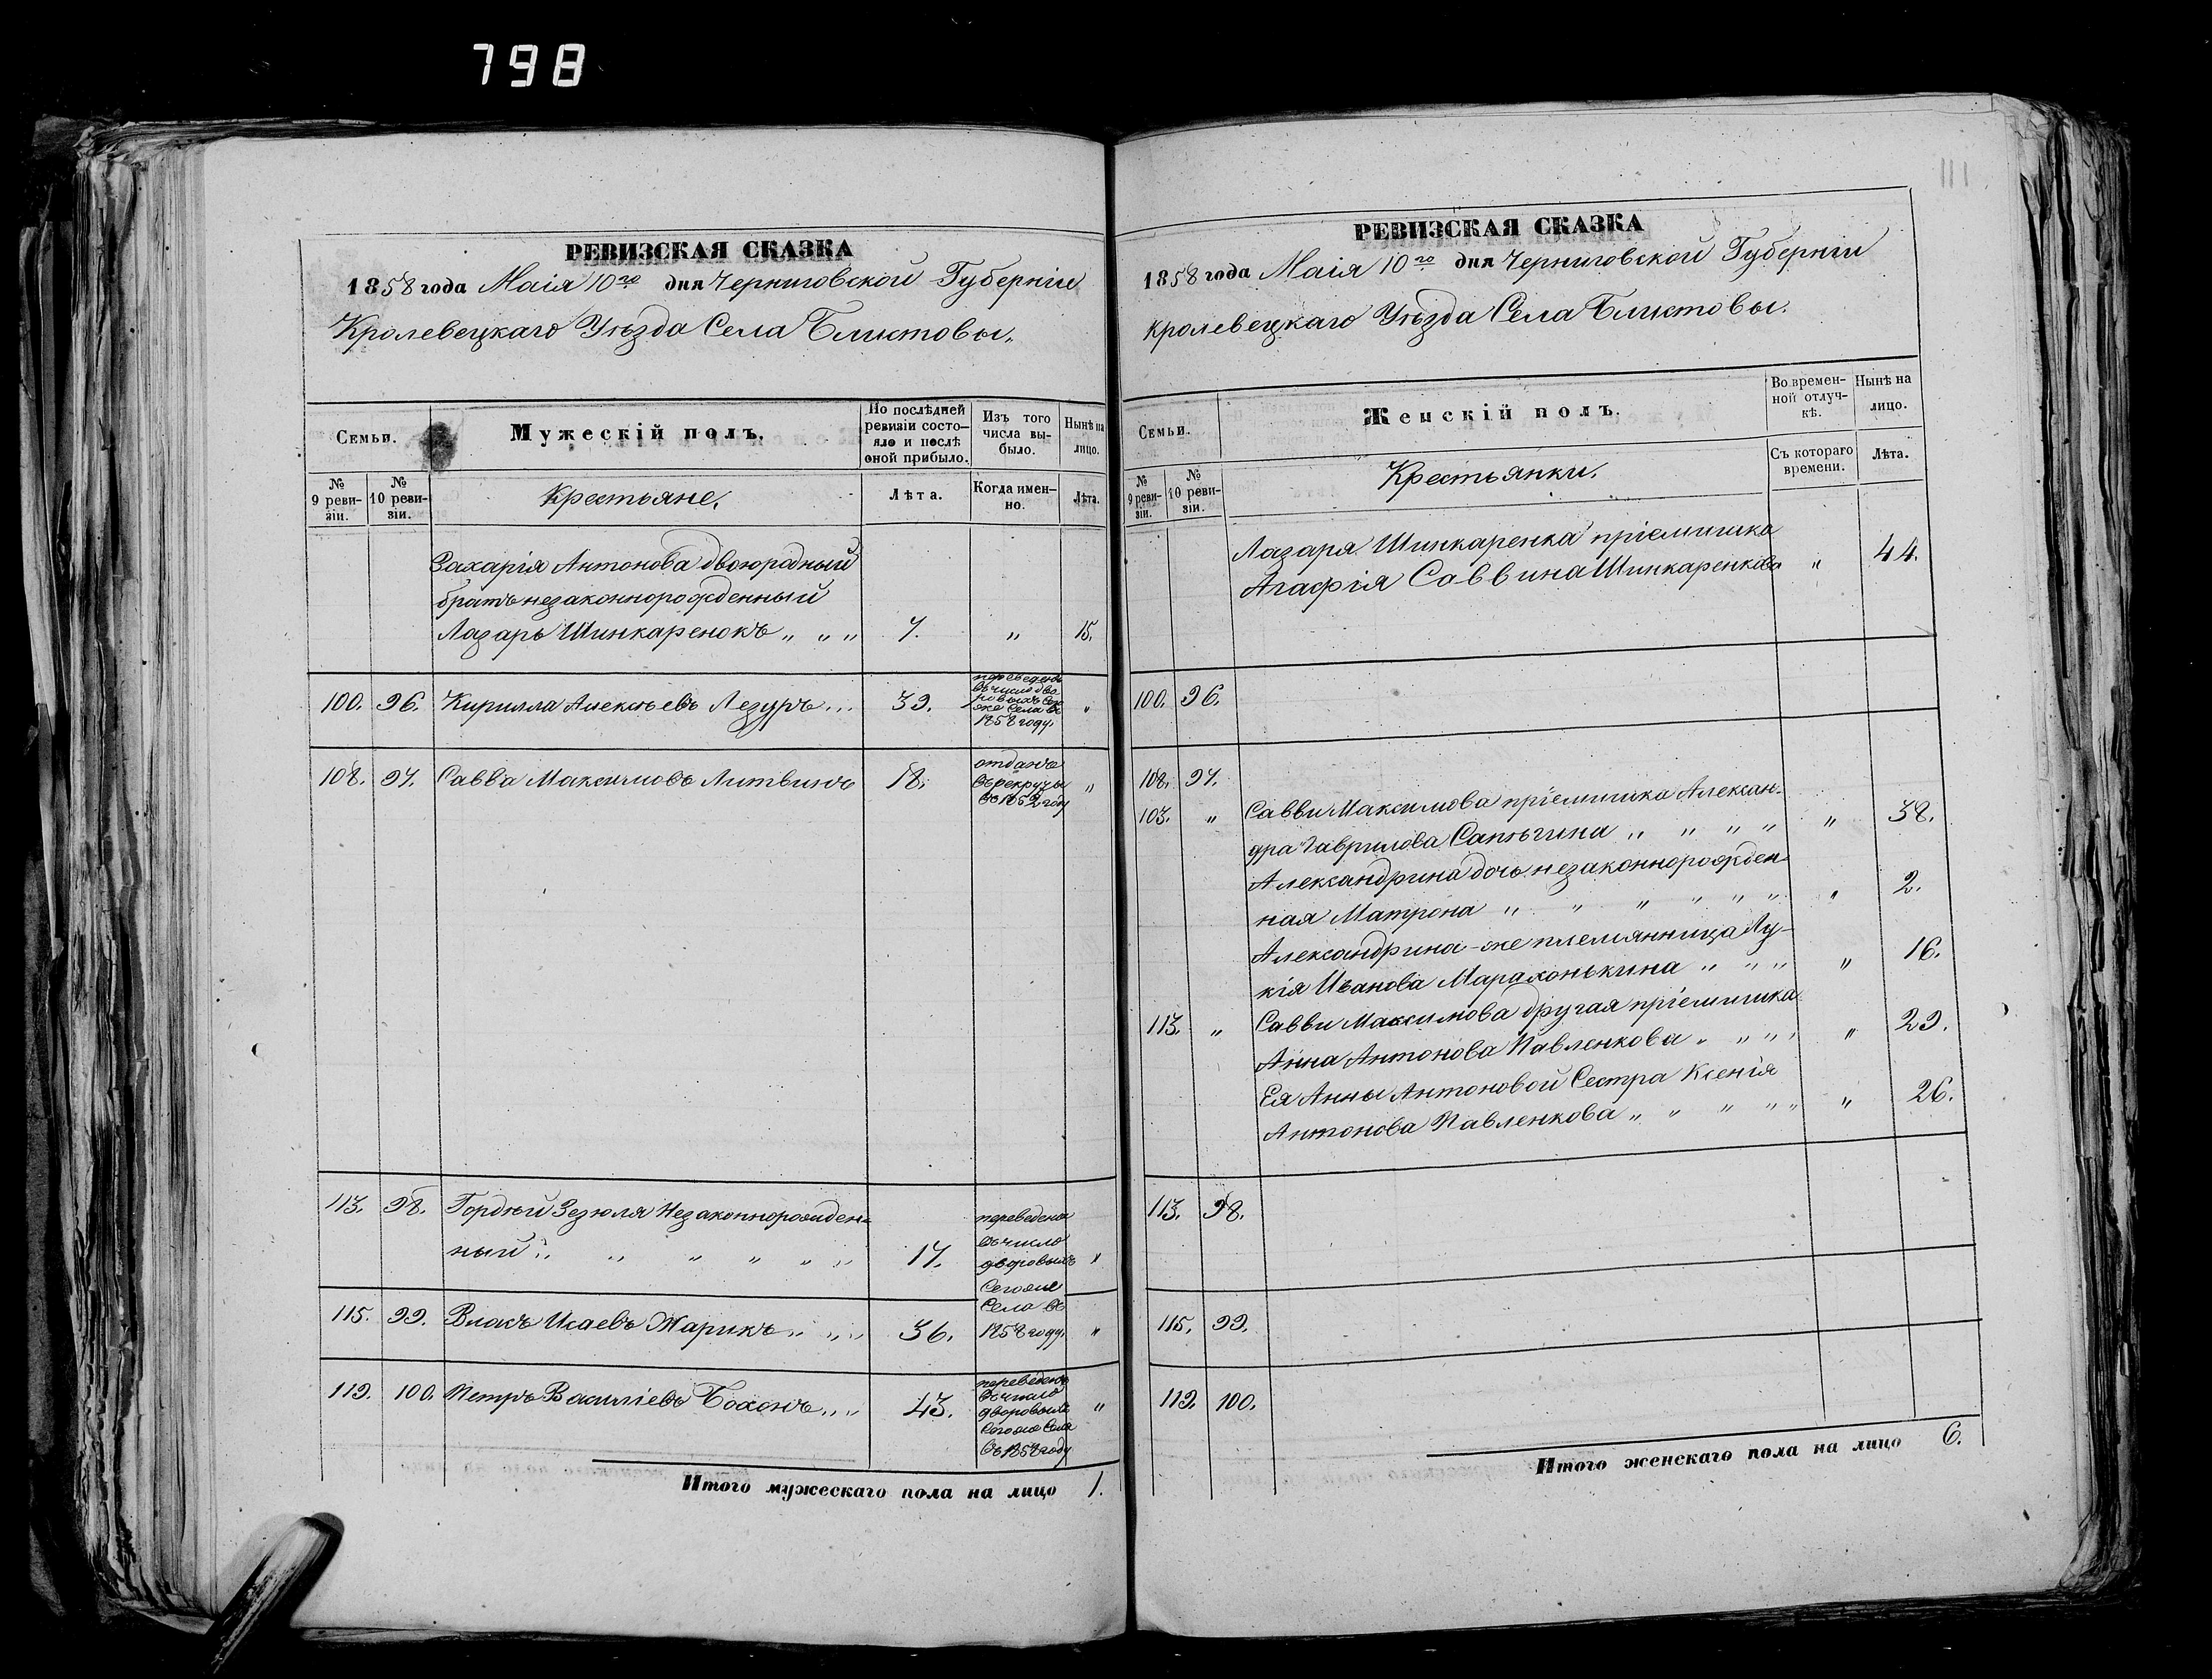 798
111
РЕВИЗСКАЯ СКАЗКА
1858 года Маія 10го дня Черниговской Губерніи
Кролевецкаго Уѣзда Села Блистовы.
Семьи.
Мужескій полъ.
По послѣдней ревизіи состояло и послѣ оной прибыло.
Изъ того числа выбыло.
Нынѣ на лицо.
№ 9 ревизіи.
№ 10 ревизіи.
Крестьяне.
Лѣта.
Когда именно.
Лѣта.
Захарія Антонова двоюродный
братъ незаконнорожденный
Лазарь Шинкаренокъ „ „ „ 7. „ 15.
100. 96. Кирилла Алексѣевъ Лезуръ... 39. „
переведенъ
въ число дво
ровыхъ сего
же Села въ
1858 году.
108. 97. Савва Максимовъ Литвинъ 18. „
отданъ
въ рекруты
въ 1852 году
113. 98. Гордѣй Зезюля Незаконнорожден-
ный „ „ „ „ „ „ 17. „
переведены
въ число
дворовыхъ
Сегоже
Села въ
1858 году.
115. 99. Власъ Исаевъ Жарикъ „ „ „ 36. „
119. 100. Петръ Василіевъ Боханъ „ „ 43. „
переведенъ
въ число
дворовыхъ
Сегоже Села
въ 1858 году
Итого мужескаго пола на лицо 1.
РЕВИЗСКАЯ СКАЗКА
1858 года Маія 10го дня Черниговской Губерніи
Кролевецкаго Уѣзда Села Блистовы.
Семьи.
Женскій полъ.
Во временной отлучкѣ.
Нынѣ на лицо.
№ 9 ревизіи.
№ 10 ревизіи.
Крестьянки.
Съ котораго времени.
Лѣта.
Лазаря Шинкаренка пріемишка
Агафія Саввина Шинкаренкова „ 44.
100. 96.
108. 97.
103. „ Савви Максимова пріемишка Алексан-
дра Гаврилова Сапѣгина „ „ „ „ „ 38.
Александрина дочь незаконнорожден
ная Матрона „ „ „ „ „ „ „ 2.
Александрина-же племянница Лу-
кія Иванова Марахонькина „ „ „ „ 16.
113. „ Савви Максимова другая пріемишка
Анна Антонова Павленкова „ „ „ „ „ 29.
Ея Анны Антоновой Сестра Ксенія
Антонова Павленкова „ „ „ „ „ „ 26.
113. 98.
115. 99.
119. 100.
Итого женскаго пола на лицо 6.